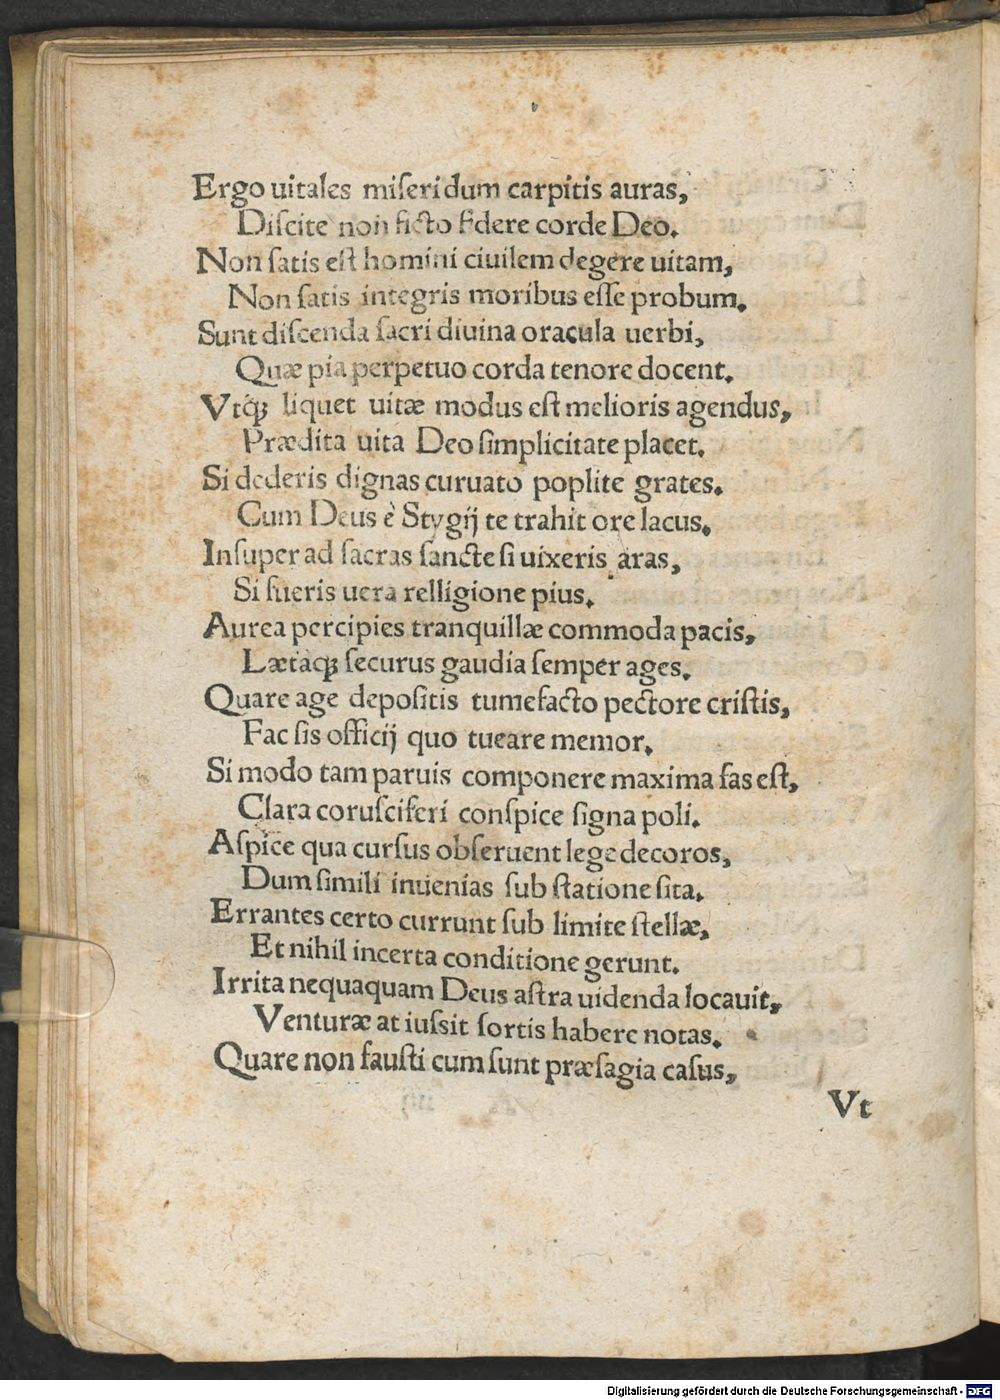 Ergo uitales miſeri dum carpitis auras,
Diſcite non ficto fidere corde Deo.
Non ſatis eſt homini ciuilem degere uitam,
Non ſatis integris moribus eſſe probum.
Sunt diſcenda ſacri diuina oracula uerbi,
Quæ pia perpetuo corda tenore docent.
Vtq́ꝫ liquet uitæ modus eſt melioris agendus,
Prædita uita Deo ſimplicitate placet.
Si dederis dignas curuato poplite grates.
Cum Deus è Stygij te trahit ore lacus.
Inſuper ad ſacras ſancte ſi uixeris aras,
Si fueris uera relligione pius.
Aurea percipies tranquillæ commoda pacis,
Lætaqꝫ ſecurus gaudia ſemper ages.
Quare age depoſitis tumefacto pectore criſtis,
Fac ſis officij quo tueare memor.
Si modo tam paruis componere maxima fas eſt,
Clara coruſciferi conſpice ſigna poli.
Aſpice qua curſus obſeruent lege decoros,
Dum ſimili inuenias ſub ſtatione ſita.
Errantes certo currunt ſub limite ſtellæ,
Et nihil incerta conditione gerunt.
Irrita nequaquam Deus aſtra uidenda locauit,
Venturæ at iuſsit ſortis habere notas.
Quare non fauſti cum ſunt præſagia caſus,
Vt
Digitalisierung gefördert durch die Deutsche Forschungsgemeinschaft - DFG